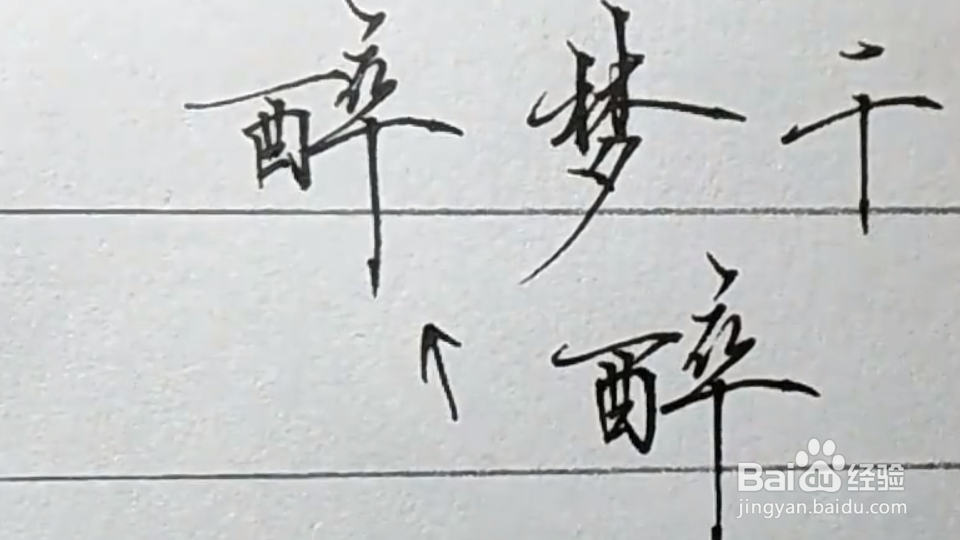 醉梦干
醉
Baidu经验
jingyan.baidu.com